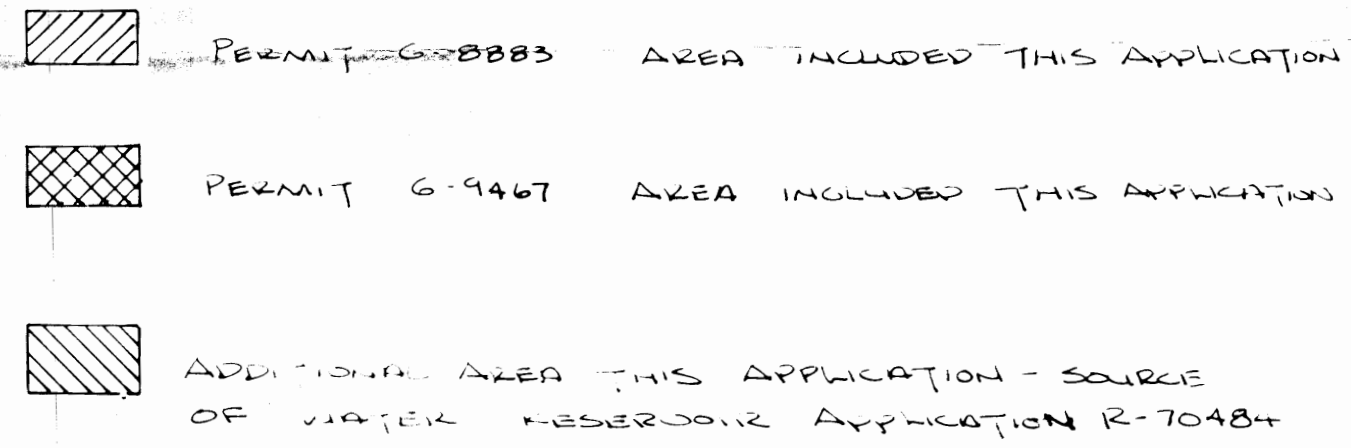 PERMIT G-8883 AREA INCLUDED THIS APPLICATION
PERMIT G-9467 AREA INCLUDED THIS APPLICATION
ADDITIONAL AREA THIS APPLICATION - SOURCE
OF WATER RESERVOIR APPLICATION R-70484